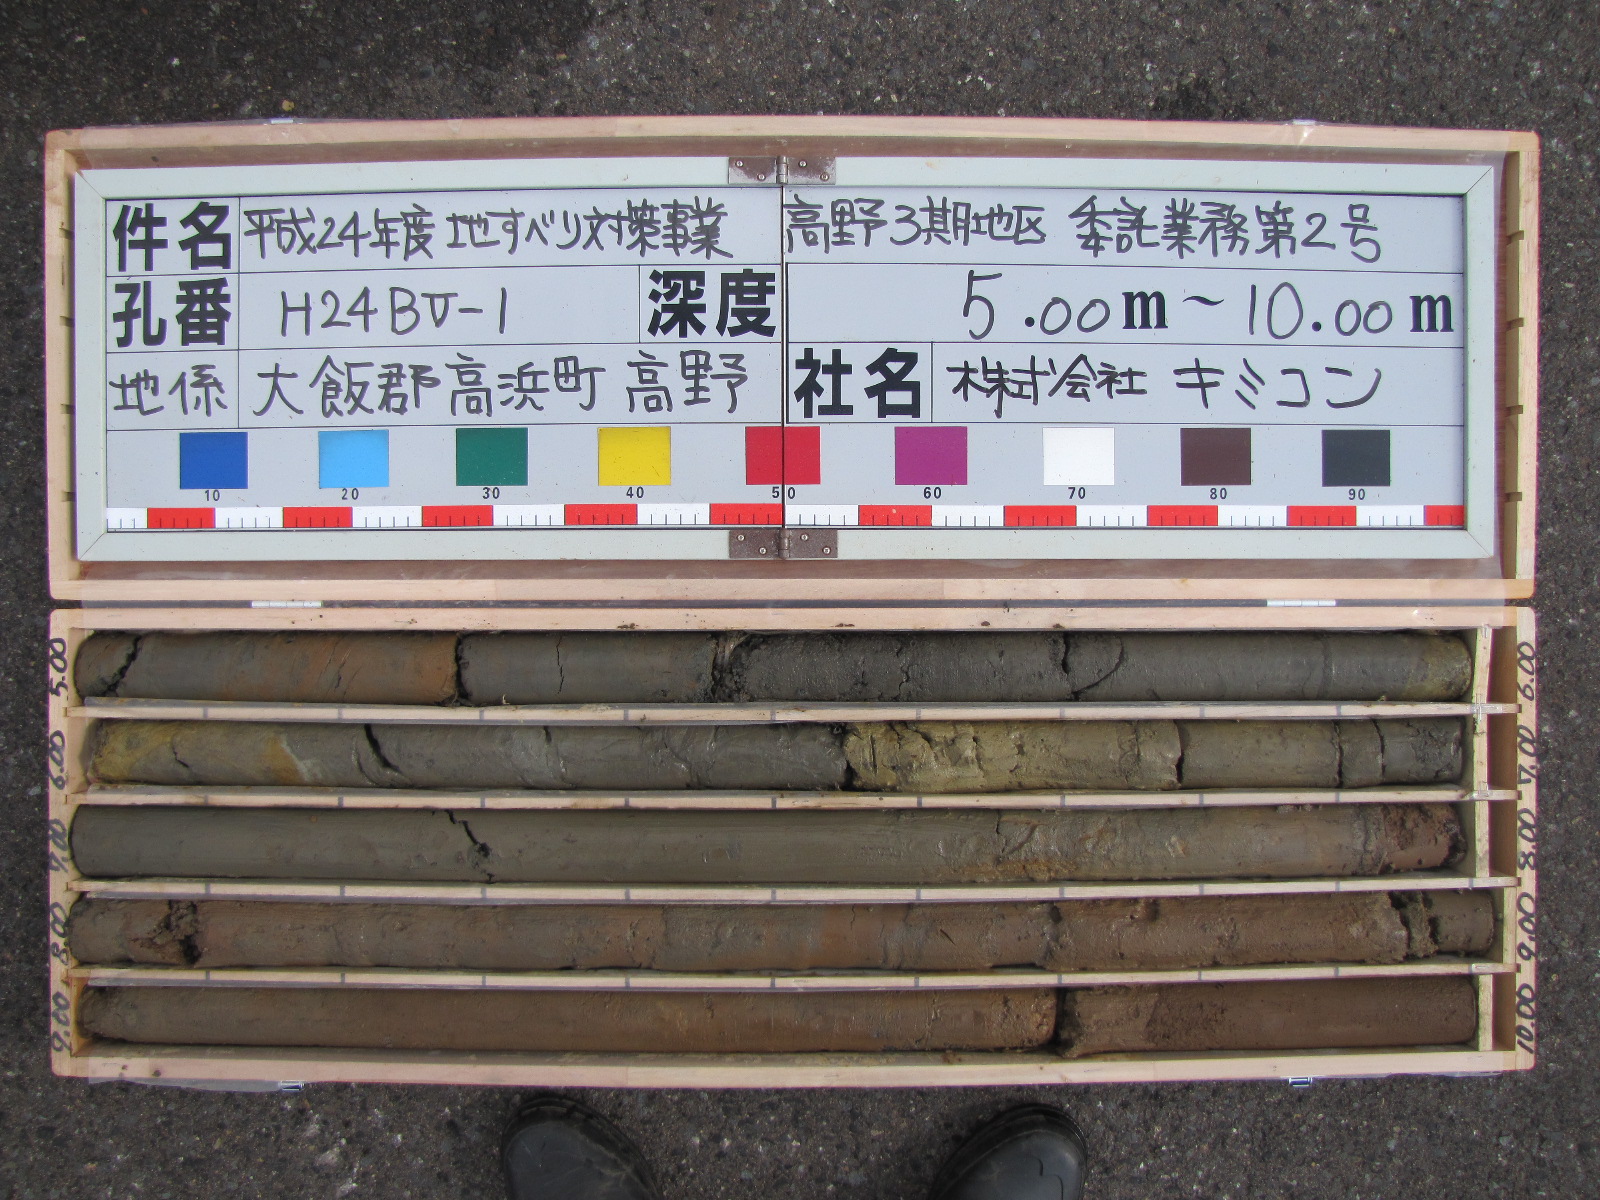 件名 平成24年度 地すべり対策事業 高野3期地区 委託業務第2号
孔番 H24BV-1 深度 5.00m~10.00m
地係 大飯郡高浜町 高野 社名 株式会社 キミコン
10 20 30 40 50 60 70 80 90
5.00 6.00
6.00 7.00
7.00 8.00
8.00 9.00
9.00 10.00